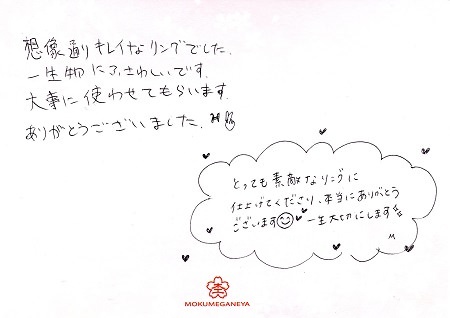 想像通りキレイなリングでした。
一生物にふさわしいです。
大事に使わせてもらいます。
ありがとうございました。
とっても素敵なリングに
仕上げてくださり、本当にありがとう
ございます 一生大切にします
M
MOKUMEGANEYA